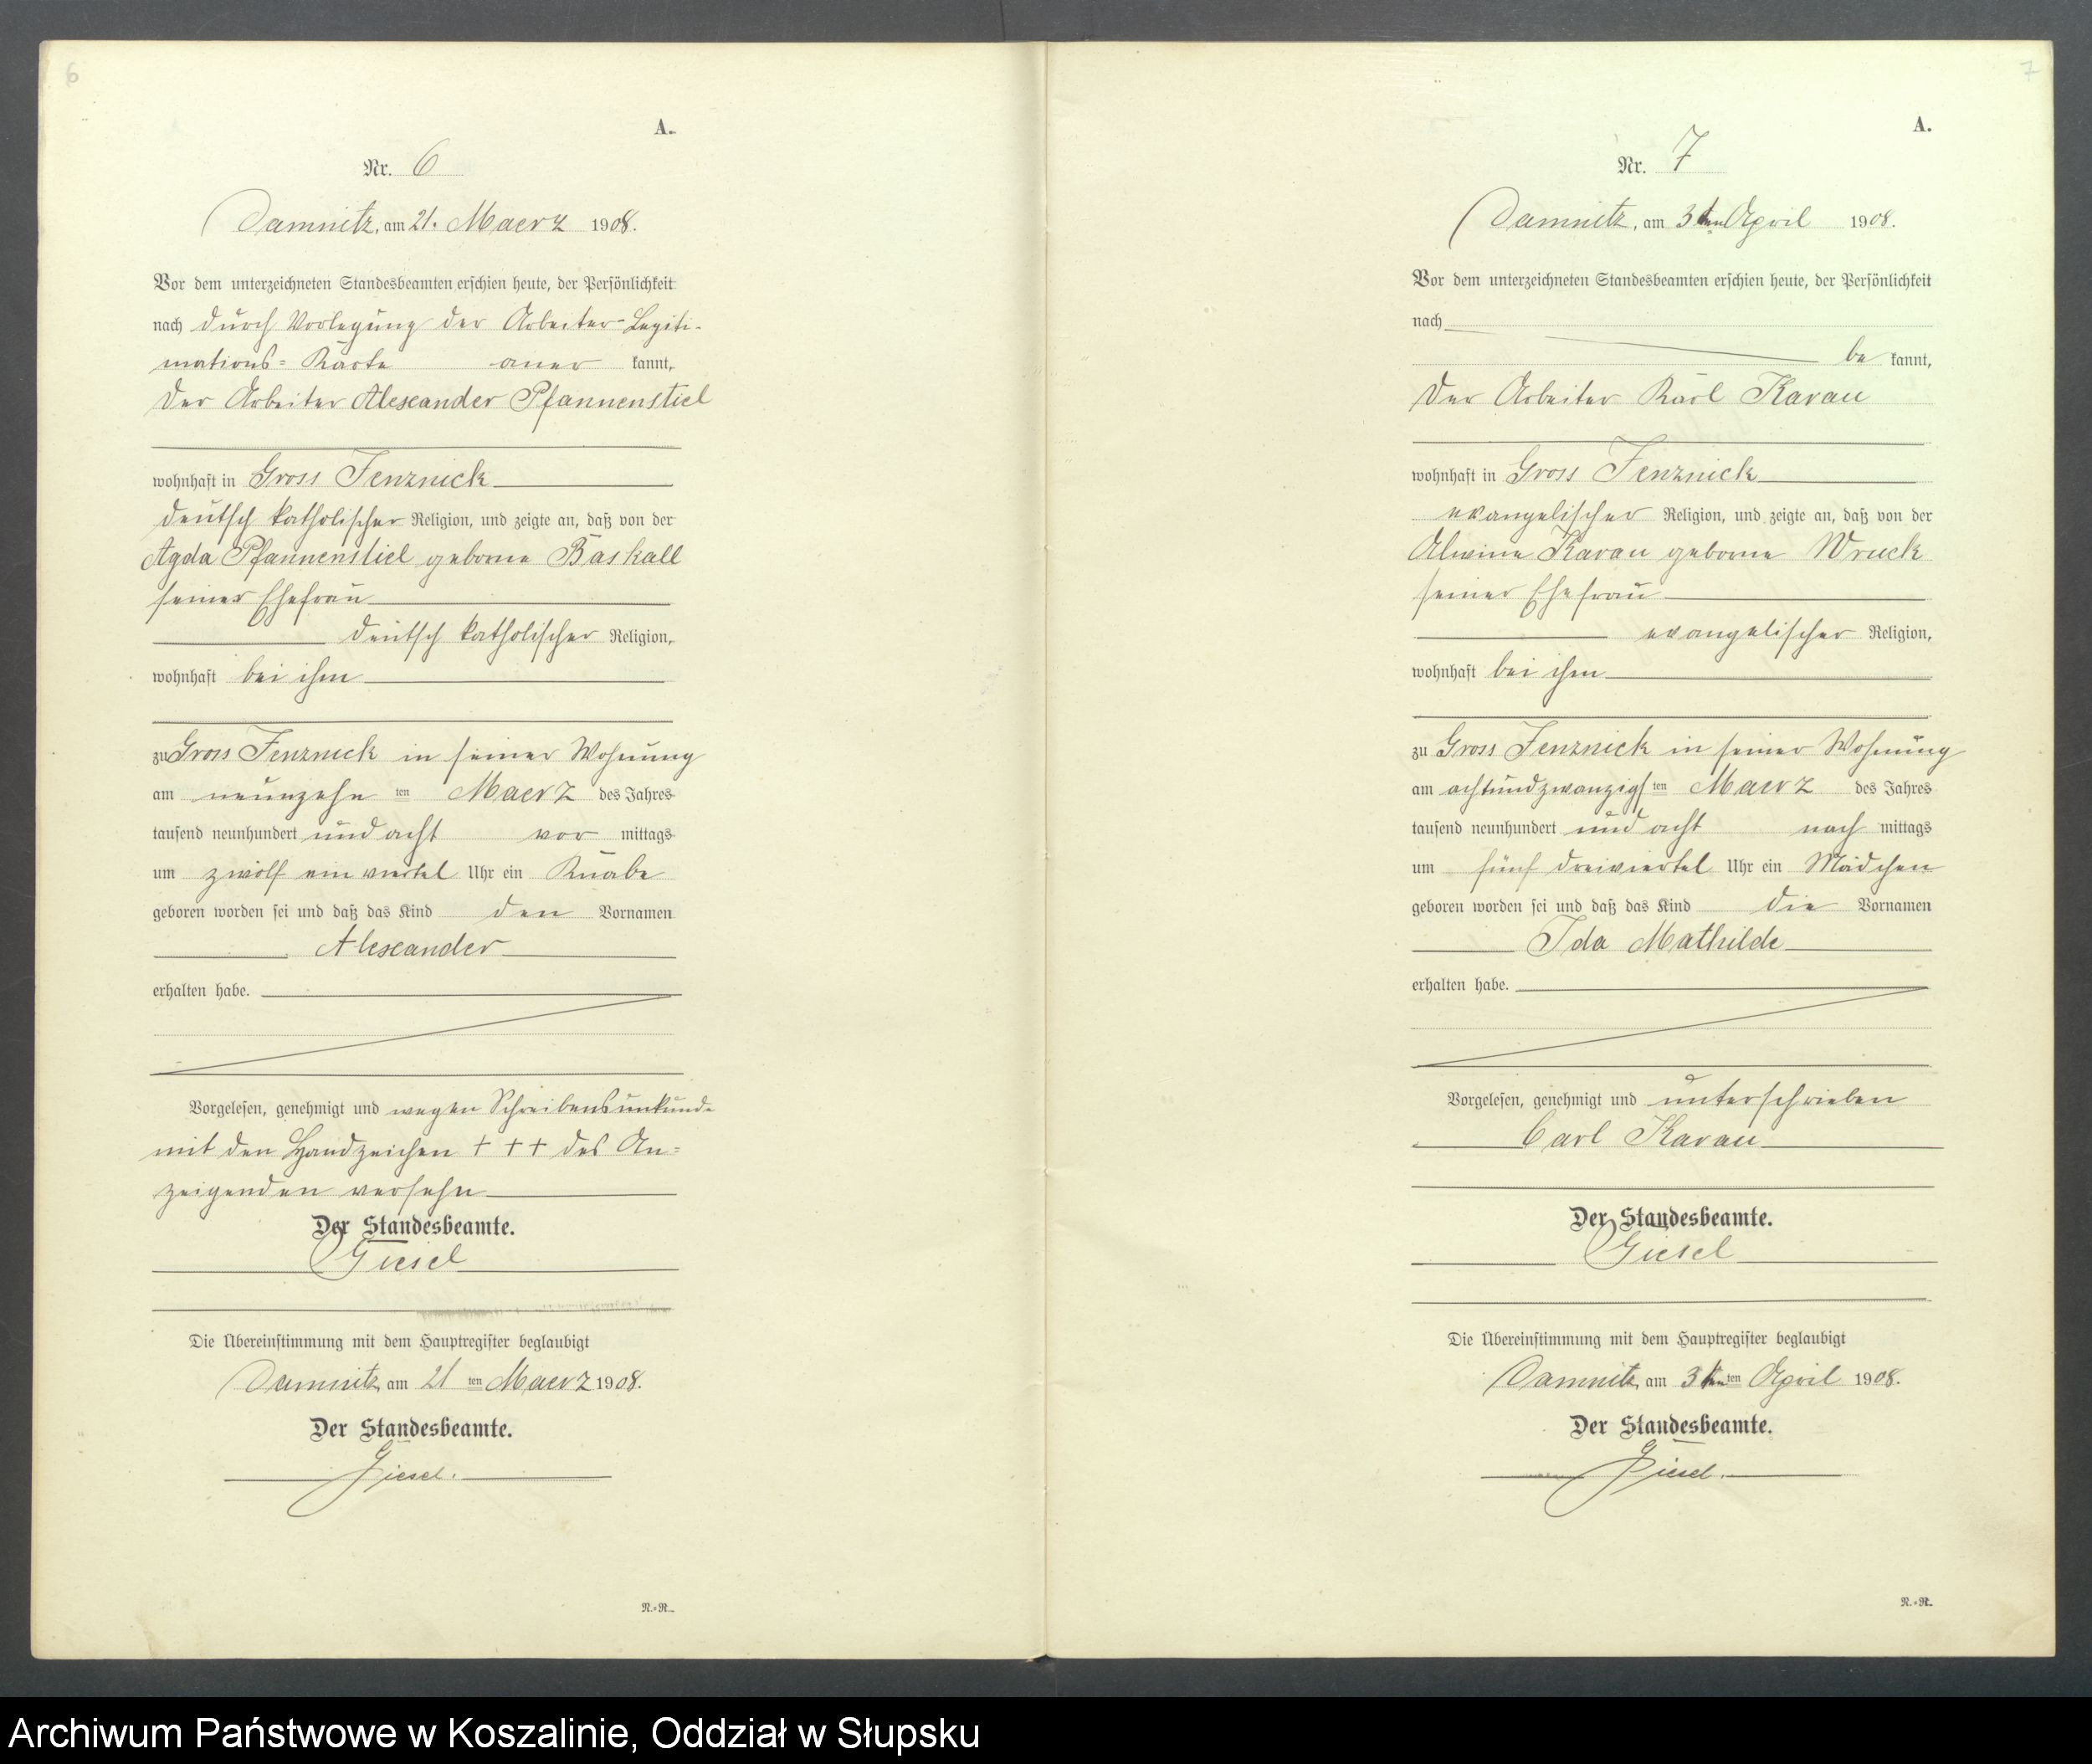 6
A.
Nr. 6
Damnitz, am 21. Maerz 1908.
Vor dem unterzeichneten Standesbeamten erschien heute, der Persönlichkeit
nach durch Vorlegung der Arbeiter-Legiti-
mations-Karte aner kannt,
der Arbeiter Alexander Pfannenstiel
wohnhaft in Gross Jenznick
deutsch katholischer Religion, und zeigte an, daß von der
Agda Pfannenstiel geborne Baskall
seiner Ehefrau
deutsch katholischer Religion,
wohnhaft bei ihm
zu Gross Jenznick in seiner Wohnung
am neunzehn ten Maerz des Jahres
tausend neunhundert und acht vor mittags
um zwölf ein viertel Uhr ein Knabe
geboren worden sei und daß das Kind den Vornamen
Alexander
erhalten habe.
Vorgelesen, genehmigt und wegen Schreibensunkunde
mit den Handzeichen + + + des An-
zeigenden versehn
Der Standesbeamte.
Giesel
Die Übereinstimmung mit dem Hauptregister beglaubigt
Damnitz, am 21 ten Maerz 1908.
Der Standesbeamte.
Giesel.
N.=R.
7
A.
Nr. 7
Damnitz, am 3ten April 1908.
Vor dem unterzeichneten Standesbeamten erschien heute, der Persönlichkeit
nach
be kannt,
der Arbeiter Karl Karau
wohnhaft in Gross Jenznick
evangelischer Religion, und zeigte an, daß von der
Alwine Karau geborne Wruck
seiner Ehefrau
evangelischer Religion,
wohnhaft bei ihm
zu Gross Jenznick in seiner Wohnung
am achtundzwanzigs ten Maerz des Jahres
tausend neunhundert und acht nach mittags
um fünf dreiviertel Uhr ein Mädchen
geboren worden sei und daß das Kind die Vornamen
Ida Mathilde
erhalten habe.
Vorgelesen, genehmigt und unterschrieben
Carl Karau
Der Standesbeamte.
Giesel
Die Übereinstimmung mit dem Hauptregister beglaubigt
Damnitz, am 3 ten April 1908.
Der Standesbeamte.
Giesel.
N.=R.
Archiwum Państwowe w Koszalinie, Oddział w Słupsku